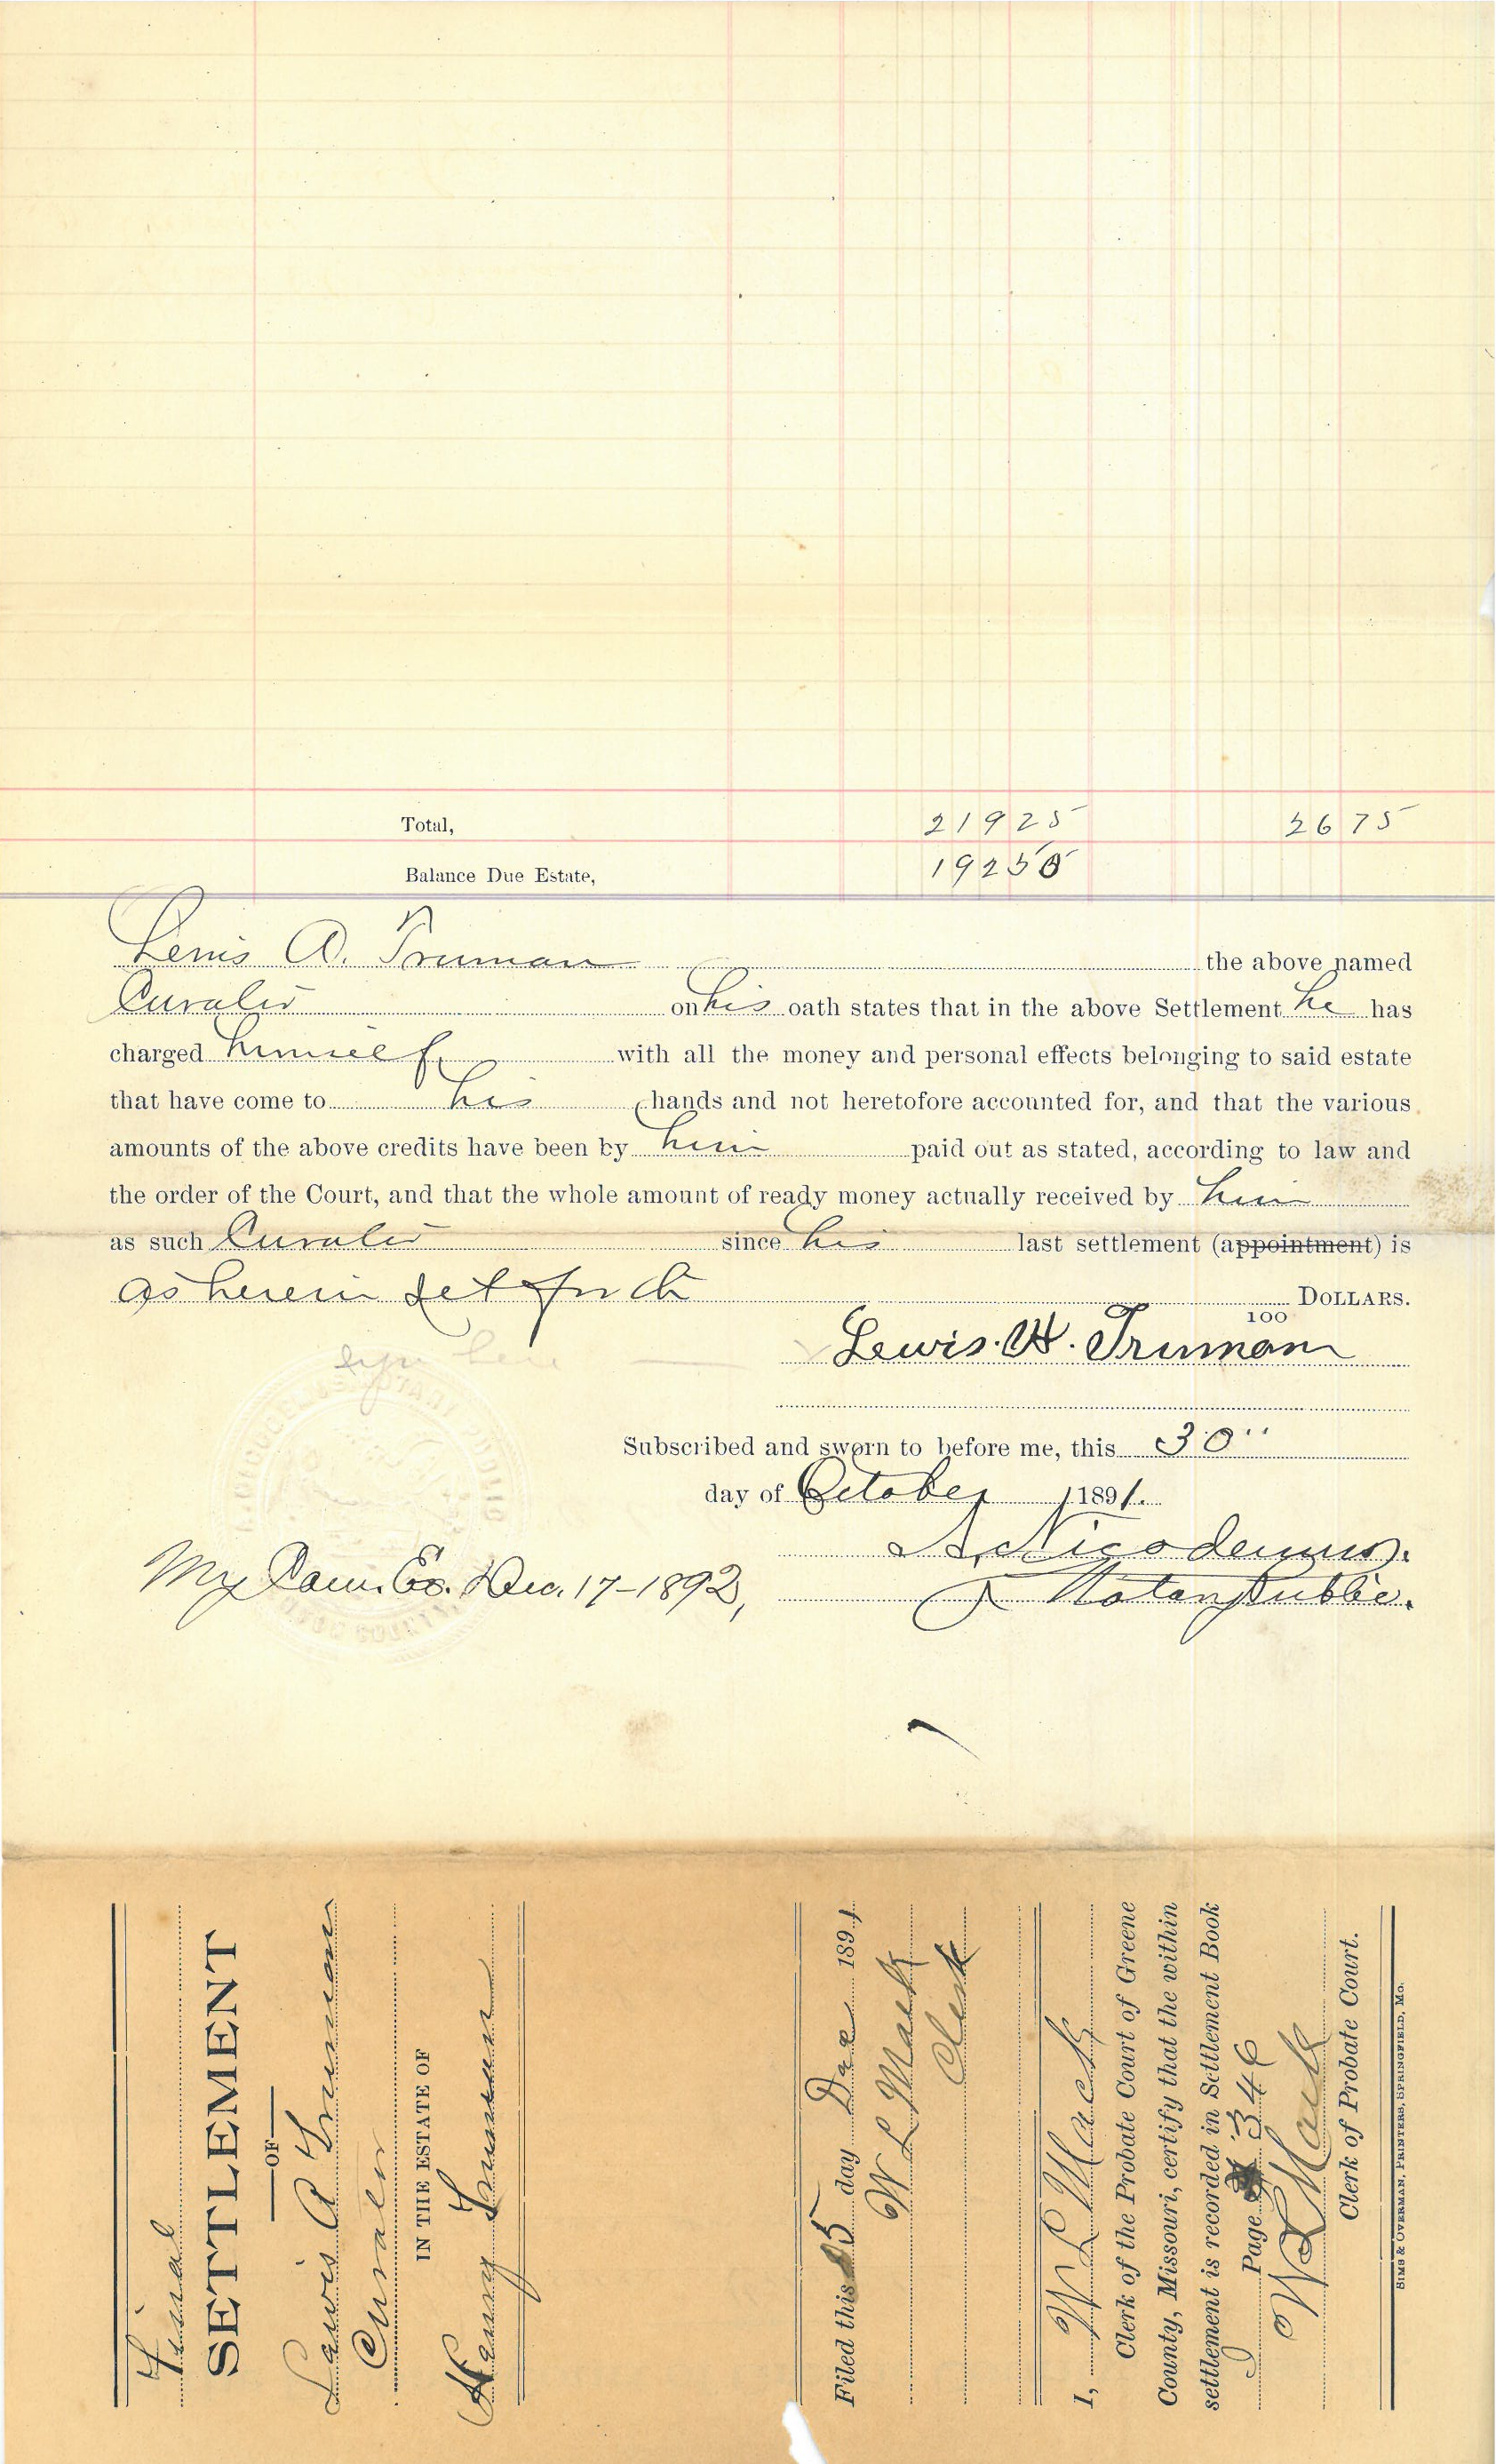 Total, 219 25 26 75
Balance Due Estate, 192 50
Lewis A. Truman the above named
Curator on his oath states that in the above Settlement he has
charged himself with all the money and personal effects belonging to said estate
that have come to his hands and not heretofore accounted for, and that the various
amounts of the above credits have been by him paid out as stated, according to law and
the order of the Court, and that the whole amount of ready money actually received by him
as such Curator since his last settlement (appointment) is
as herein set forth DOLLARS.
100
sign here Lewis. A. Truman
Subscribed and sworn to before me, this 30"
day of October 1891.
My Com. Ex. Dec. 17-1892, Nicodemus.
Notary Public.
Final
SETTLEMENT
OF
Lewis A Truman
Curator
IN THE ESTATE OF
Henry Truman
Filed this 5 day Dec 1891
W L Mack
Clerk
I, W L Mack
Clerk of the Probate Court of Greene
County, Missouri, certify that the within
settlement is recorded in Settlement Book
J Page 346
W L Mack
Clerk of Probate Court.
SIMS & OVERMAN, PRINTERS, SPRINGFIELD, MO.